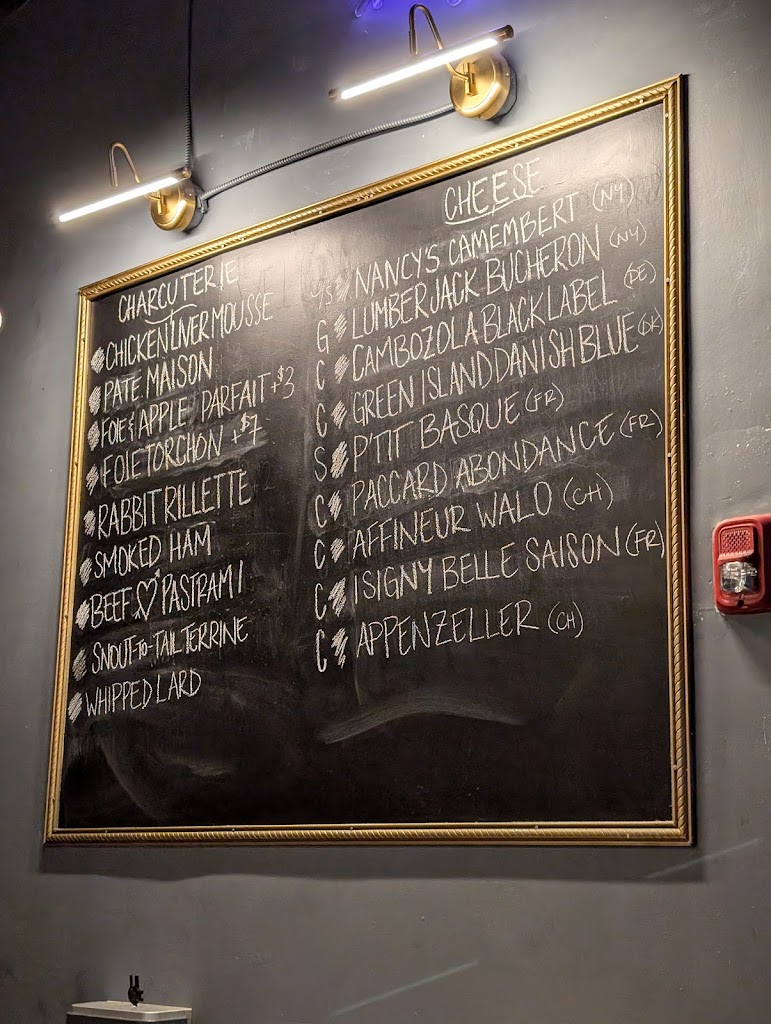 CHARCUTERIE
CHICKEN LIVER MOUSSE
PATE MAISON
FOIE & APPLE PARFAIT +$3
FOIE TORCHON +$7
RABBIT RILLETTE
SMOKED HAM
BEEF ♡ PASTRAMI
SNOUT-TO-TAIL TERRINE
WHIPPED LARD
CHEESE
NANCY'S CAMEMBERT (NY)
G LUMBERJACK BUCHERON (NY)
C CAMBOZOLA BLACK LABEL (DE)
C GREEN ISLAND DANISH BLUE (DK)
S P'TIT BASQUE (FR)
C PACCARD ABONDANCE (FR)
C AFFINEUR WALO (CH)
C ISIGNY BELLE SAISON (FR)
C APPENZELLER (CH)